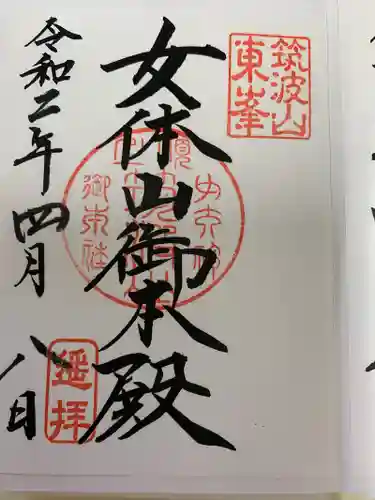 筑波山
東峯
女体山御本殿
令和二年四月八日
遥拝